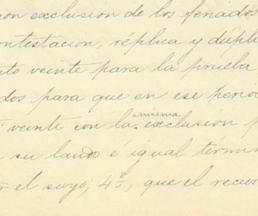 con exclusion de los feriados
ontestacion, réplica y dúpli
nto veinte para la prueba
dos para que en ese perio
veinte con la misma exclusion p
su laudo é igual termin
el suyo; 4º, que el recur